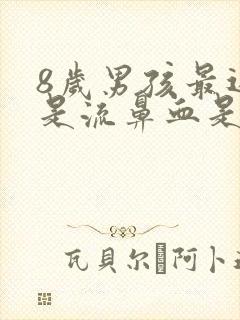 8岁男孩最近
是流鼻血是
瓦贝尔·阿卜